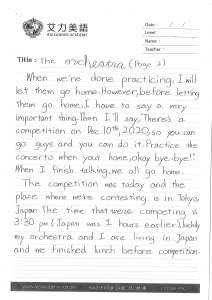 艾力美語
ALEXANDER ACADEMY
Date: / /
Level:
Name:
Teacher:
Title: The orchestra (Page 2)
When we're done practicing, I will
let them go home. However, before letting
them go home, I have to say a very
important thing. Then I'll say, There's a
competition on Dec 10th, 2020, so you can
go guys and you can do it. Practice the
concerto when your home, okay bye-bye!"
When I finish talking, we all go home.
The competition was today and the
place where we're contesting is in Tokyo,
Japan. The time that were competing is
3:30 pm (Japan was 1 hours earlier), luckly
my orchestra and I are living in Japan
and we finished lunch before competition.